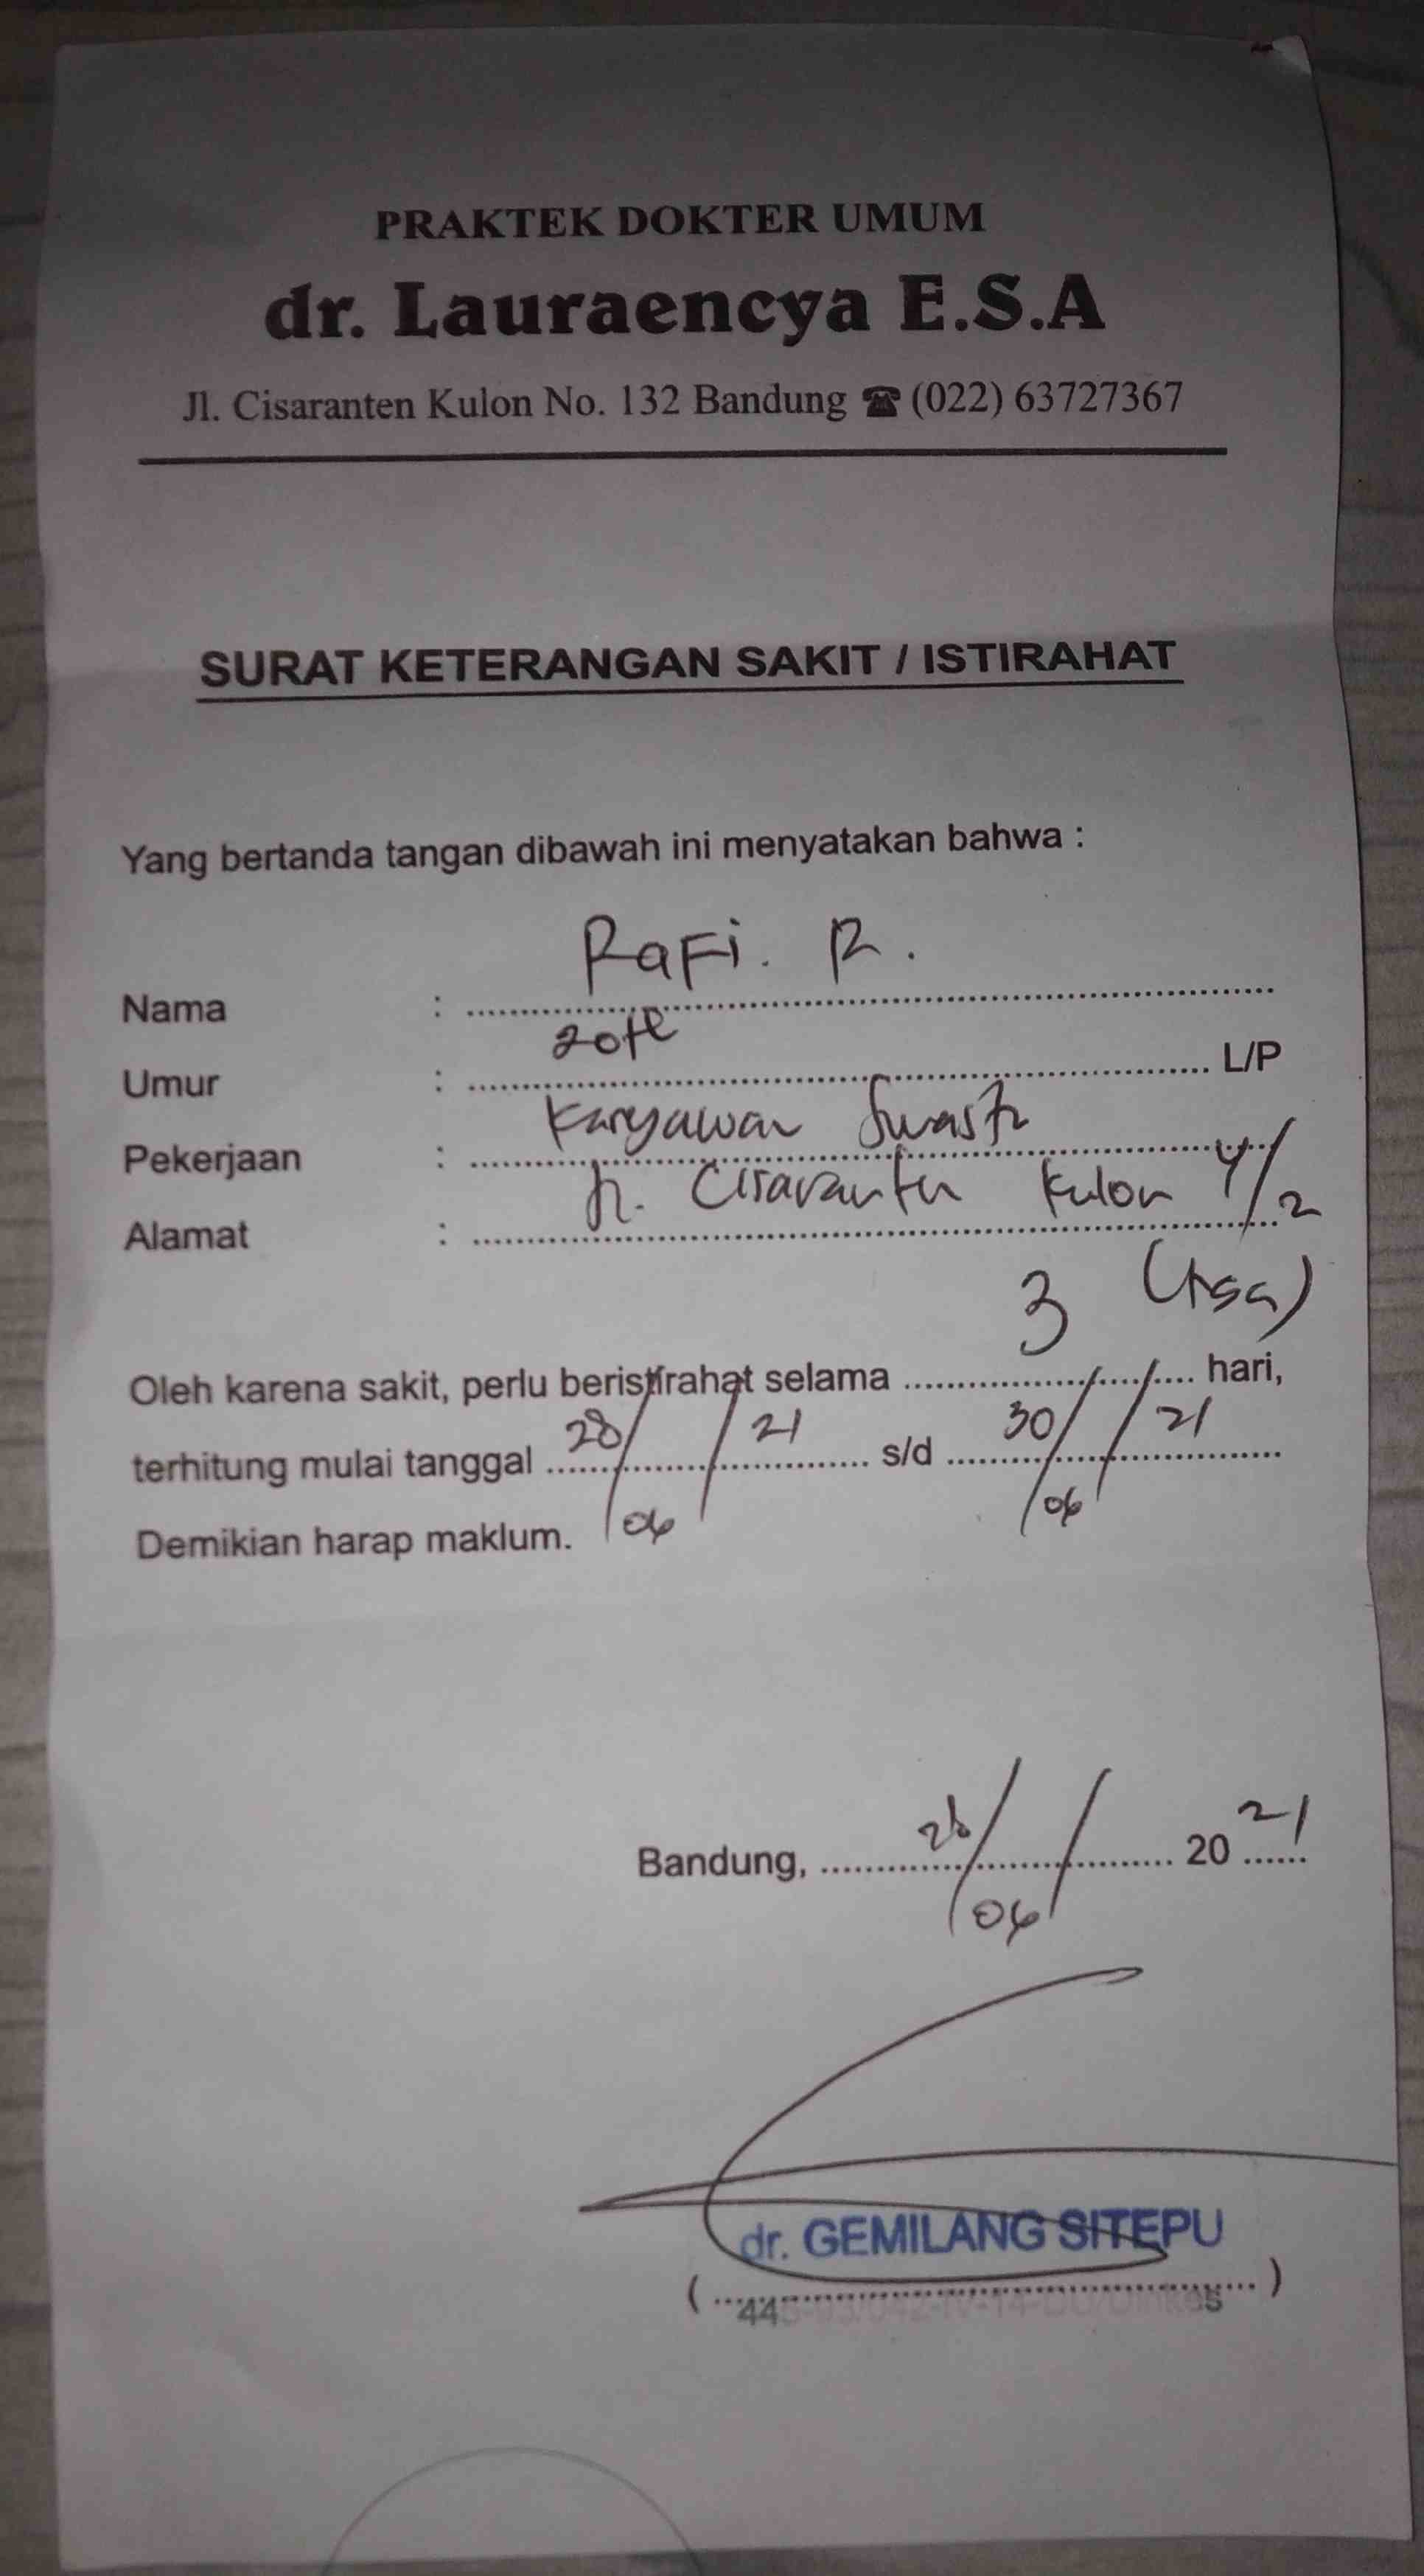 PRAKTEK DOKTER UMUM
dr. Lauraencya E.S.A
Jl. Cisaranten Kulon No. 132 Bandung ☎ (022) 63727367
SURAT KETERANGAN SAKIT / ISTIRAHAT
Yang bertanda tangan dibawah ini menyatakan bahwa :
Nama : Rafi. R.
Umur : 20 L/P
Pekerjaan : Karyawan Swasta
Alamat : Jl. Cisaranten Kulon 4/2
Oleh karena sakit, perlu beristirahat selama 3 (tiga) hari,
terhitung mulai tanggal 28/06/21 s/d 30/06/21
Demikian harap maklum.
Bandung, 28/06/ 20 21
dr. GEMILANG SITEPU
( )